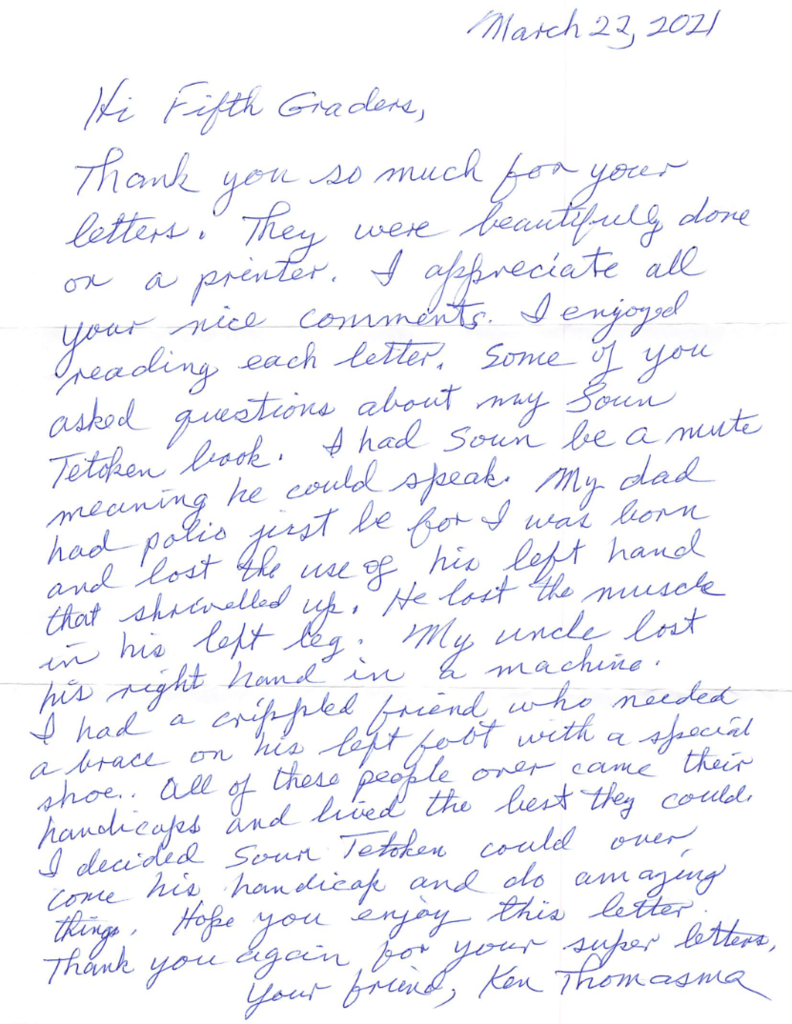 March 22, 2021
Hi Fifth Graders,
Thank you so much for your
letters. They were beautifully done
on a printer. I appreciate all
your nice comments. I enjoyed
reading each letter. Some of you
asked questions about my Soun
Tetoken book. I had Soun be a mute
meaning he could speak. My dad
had polio just be for I was born
and lost the use of his left hand
that shrivelled up. He lost the muscle
in his left leg. My uncle lost
his right hand in a machine.
I had a crippled friend who needed
a brace on his left foot with a special
shoe. All of these people over came their
handicaps and lived the best they could.
I decided Soun Tetoken could over
come his handicap and do amazing
things. Hope you enjoy this letter.
Thank you again for your super letters,
Your friend, Ken Thomasma